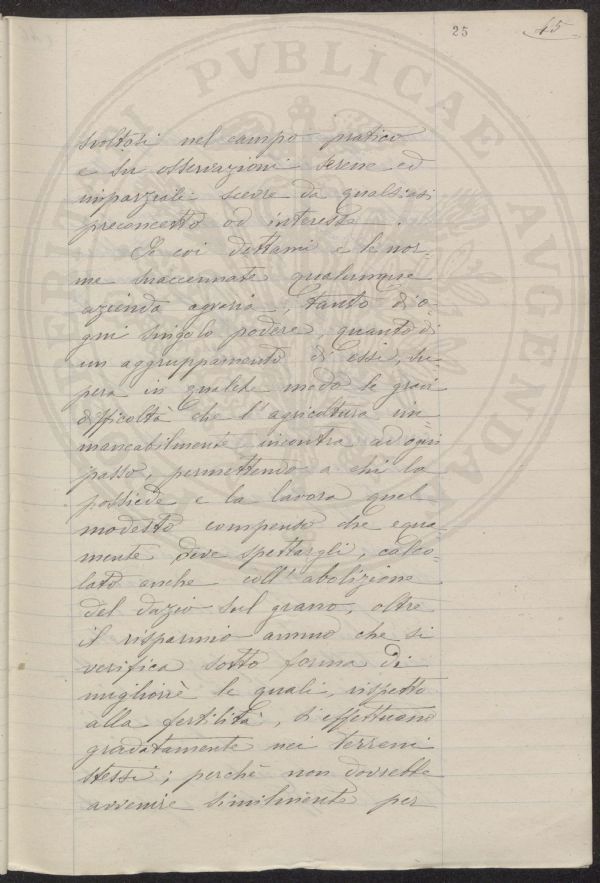 25 45
svoltosi nel campo pratico
e su osservazioni serene ed
imparziali scevre da qualsiasi
preconcetto od interesse.
Se coi dettami e le nor-
me suaccennate qualunque
azienda agraria, tanto di o-
gni singolo podere, quanto di
un aggruppamento di essi, su-
pera in qualche modo le gravi
difficoltà che l'agricoltura im-
mancabilmente incontra ad ogni
passo, permettendo a chi la
possiede e la lavora quel
modesto compenso che equa-
mente deve spettargli, calco-
lato anche coll'abolizione
del dazio sul grano, oltre
il risparmio annuo che si
verifica sotto forma di
migliorìe le quali, rispetto
alla fertilità, si effettuano
gradatamente nei terreni
stessi; perchè non dovrebbe
avvenire similmente per
PVBLICAE AVGENDAE